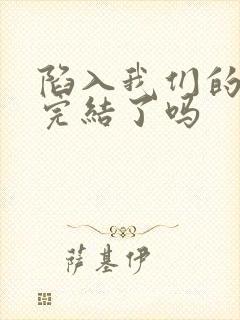 陷入我们的
完結了吗
萨基伊